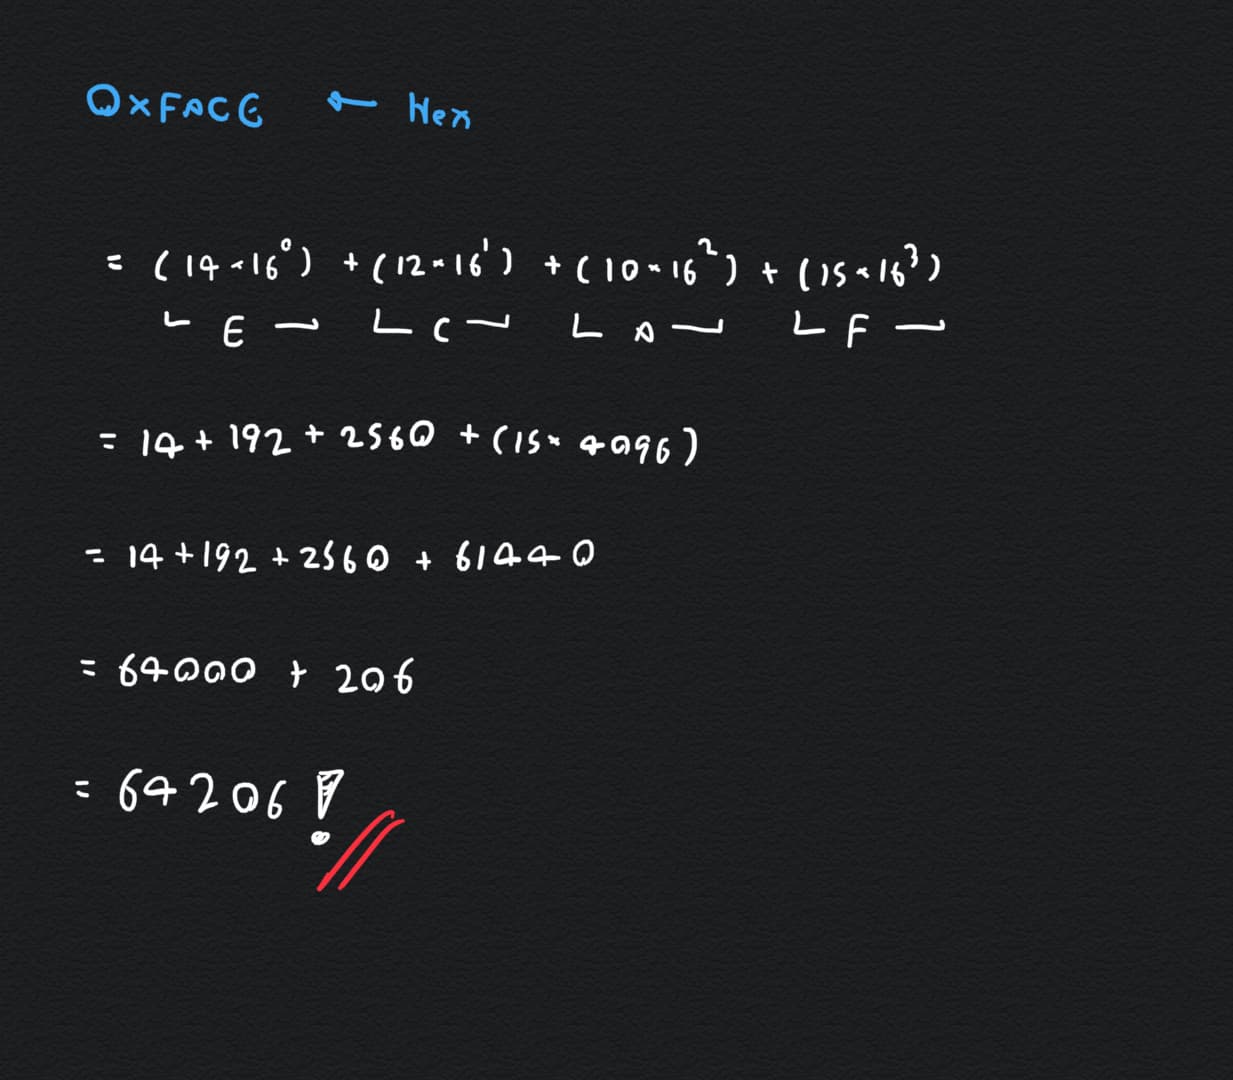 0xFACE ← Hex
= (14 × 16⁰) + (12 × 16¹) + (10 × 16²) + (15 × 16³)
E C A F
= 14 + 192 + 2560 + (15 × 4096)
= 14 + 192 + 2560 + 61440
= 64000 + 206
= 64206!